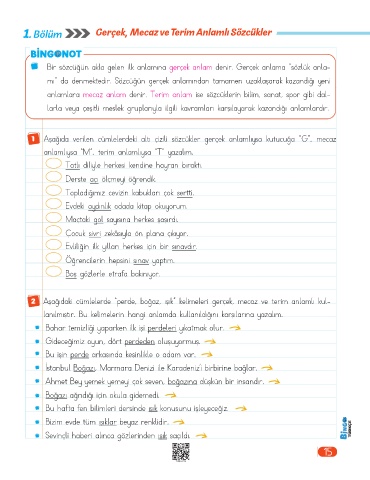 1. Bölüm Gerçek, Mecaz ve Terim Anlamlı Sözcükler
BİNGONOT
Bir sözcüğün akla gelen ilk anlamına gerçek anlam denir. Gerçek anlama "sözlük anla-
mı" da denmektedir. Sözcüğün gerçek anlamından tamamen uzaklaşarak kazandığı yeni
anlamlara mecaz anlam denir. Terim anlam ise sözcüklerin bilim, sanat, spor gibi dal-
larla veya çeşitli meslek gruplarıyla ilgili kavramları karşılayarak kazandığı anlamlardır.
1 Aşağıda verilen cümlelerdeki altı çizili sözcükler gerçek anlamlıysa kutucuğa "G", mecaz
anlamlıysa "M", terim anlamlıysa "T" yazalım.
Tatlı diliyle herkesi kendine hayran bıraktı.
Derste açı ölçmeyi öğrendik.
Topladığımız cevizin kabukları çok sertti.
Evdeki aydınlık odada kitap okuyorum.
Maçtaki gol sayısına herkes şaşırdı.
Çocuk sivri zekâsıyla ön plana çıkıyor.
Evliliğin ilk yılları herkes için bir sınavdır.
Öğrencilerin hepsini sınav yaptım.
Boş gözlerle etrafa bakınıyor.
2 Aşağıdaki cümlelerde "perde, boğaz, ışık" kelimeleri gerçek, mecaz ve terim anlamlı kul-
lanılmıştır. Bu kelimelerin hangi anlamda kullanıldığını karşılarına yazalım.
Bahar temizliği yaparken ilk işi perdeleri yıkatmak olur.
Gideceğimiz oyun, dört perdeden oluşuyormuş.
Bu işin perde arkasında kesinlikle o adam var.
İstanbul Boğazı, Marmara Denizi ile Karadeniz'i birbirine bağlar.
Ahmet Bey yemek yemeyi çok seven, boğazına düşkün bir insandır.
Boğazı ağrıdığı için okula gidemedi.
Bu hafta fen bilimleri dersinde ışık konusunu işleyeceğiz.
Bizim evde tüm ışıklar beyaz renklidir.
Sevinçli haberi alınca gözlerinden ışık saçıldı.
BİNGO
TÜRKÇE
15